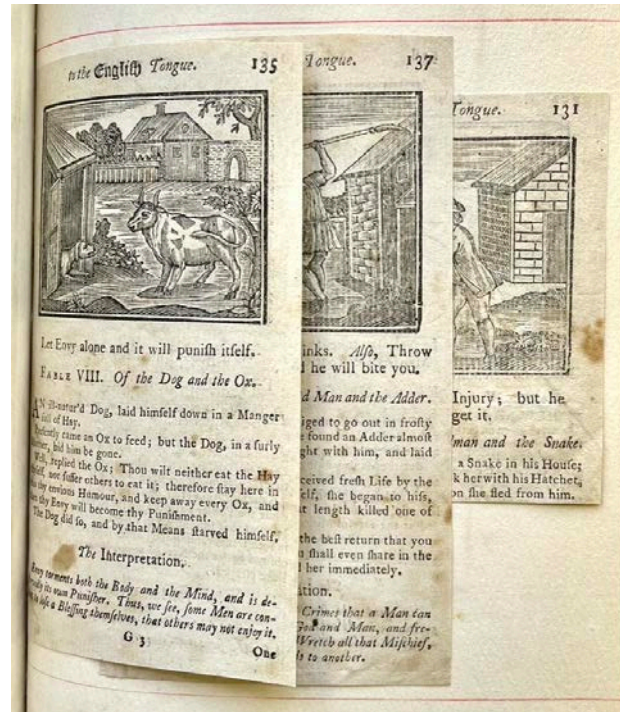 to the English Tongue. 135
Let Envy alone and it will puniſh itſelf.
FABLE VIII. Of the Dog and the Ox.
AN ill-natur'd Dog, laid himſelf down in a Manger
full of Hay.
Preſently came an Ox to feed; but the Dog, in a ſurly
Manner, bid him be gone.
Well, replied the Ox; Thou wilt neither eat the Hay
thyſelf, nor ſuffer others to eat it; therefore ſtay here in
thy envious Humour, and keep away every Ox, and
then thy Envy will become thy Puniſhment.
The Dog did ſo, and by that Means ſtarved himſelf.
The Interpretation.
Envy torments both the Body and the Mind, and is de-
its own Puniſher. Thus, we ſee, ſome Men are con-
to loſe a Bleſſing themſelves, that others may not enjoy it.
G 3
One
Tongue. 137
inks. Alſo, Throw
he will bite you.
d Man and the Adder.
iged to go out in froſty
e found an Adder almoſt
ght with him, and laid
ceived freſh Life by the
elf, ſhe began to hiſs,
t length killed one of
the beſt return that you
u ſhall even ſhare in the
l her immediately.
ation.
Crimes that a Man can
God and Man, and fre-
Wretch all that Miſchief,
ds to another.
Tongue. 131
Injury; but he
get it.
man and the Snake.
a Snake in his Houſe;
k her with his Hatchet,
on ſhe fled from him.